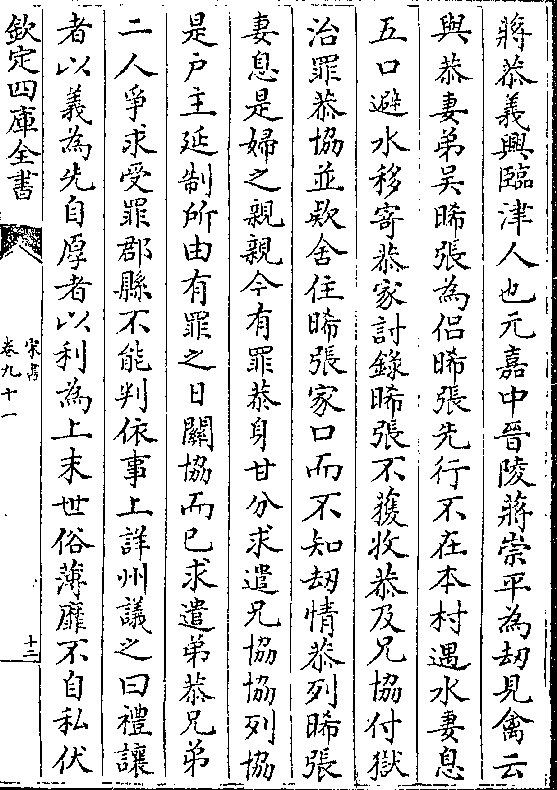 蔣恭義興臨津人也元嘉中晉陵蔣崇平為刼見禽云
與恭妻弟吳晞張為侣晞張先行不在本村遇水妻息
五口避水移寄恭家討錄晞張不獲收恭及兄協付獄
治罪恭協並欵舍住晞張家口而不知刼情恭列晞張
妻息是婦之親親今有罪恭身甘分求遣兄協協列協
是户主延制所由有罪之日關協而已求遣弟恭兄弟
二人爭求受罪郡縣不能判依事上詳州議之曰禮讓
者以義為先自厚者以利為上末世俗薄靡不自私伏
欽定四庫全書
宋書
卷九十一
十三